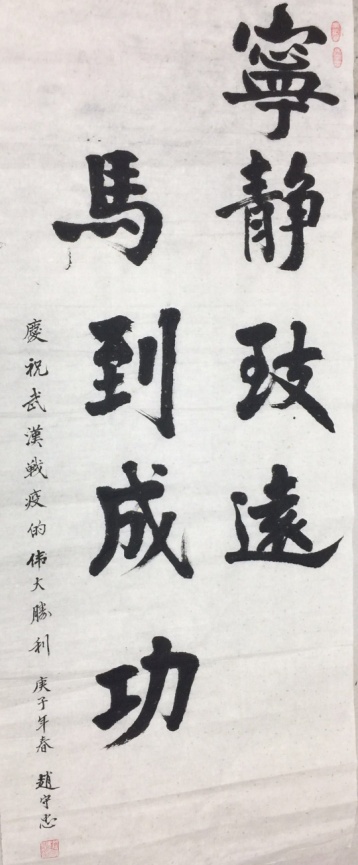 寧靜致遠
馬到成功
慶祝武漢戰疫的伟大勝利 庚子年春 趙守忠